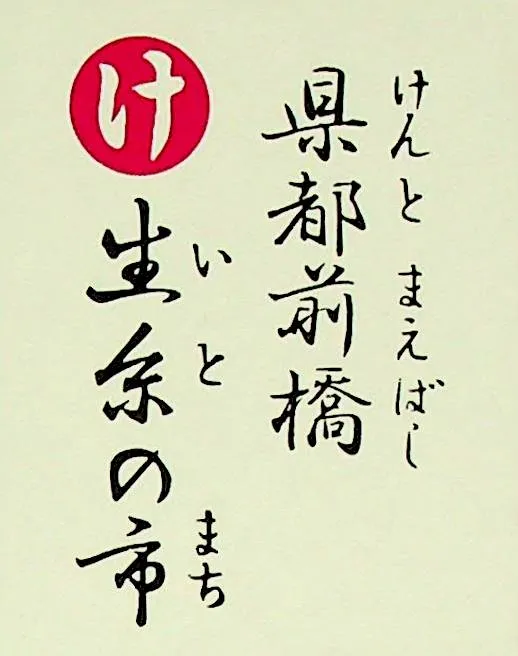 県都前橋
けんと まえばし
け
生糸の市
いと まち